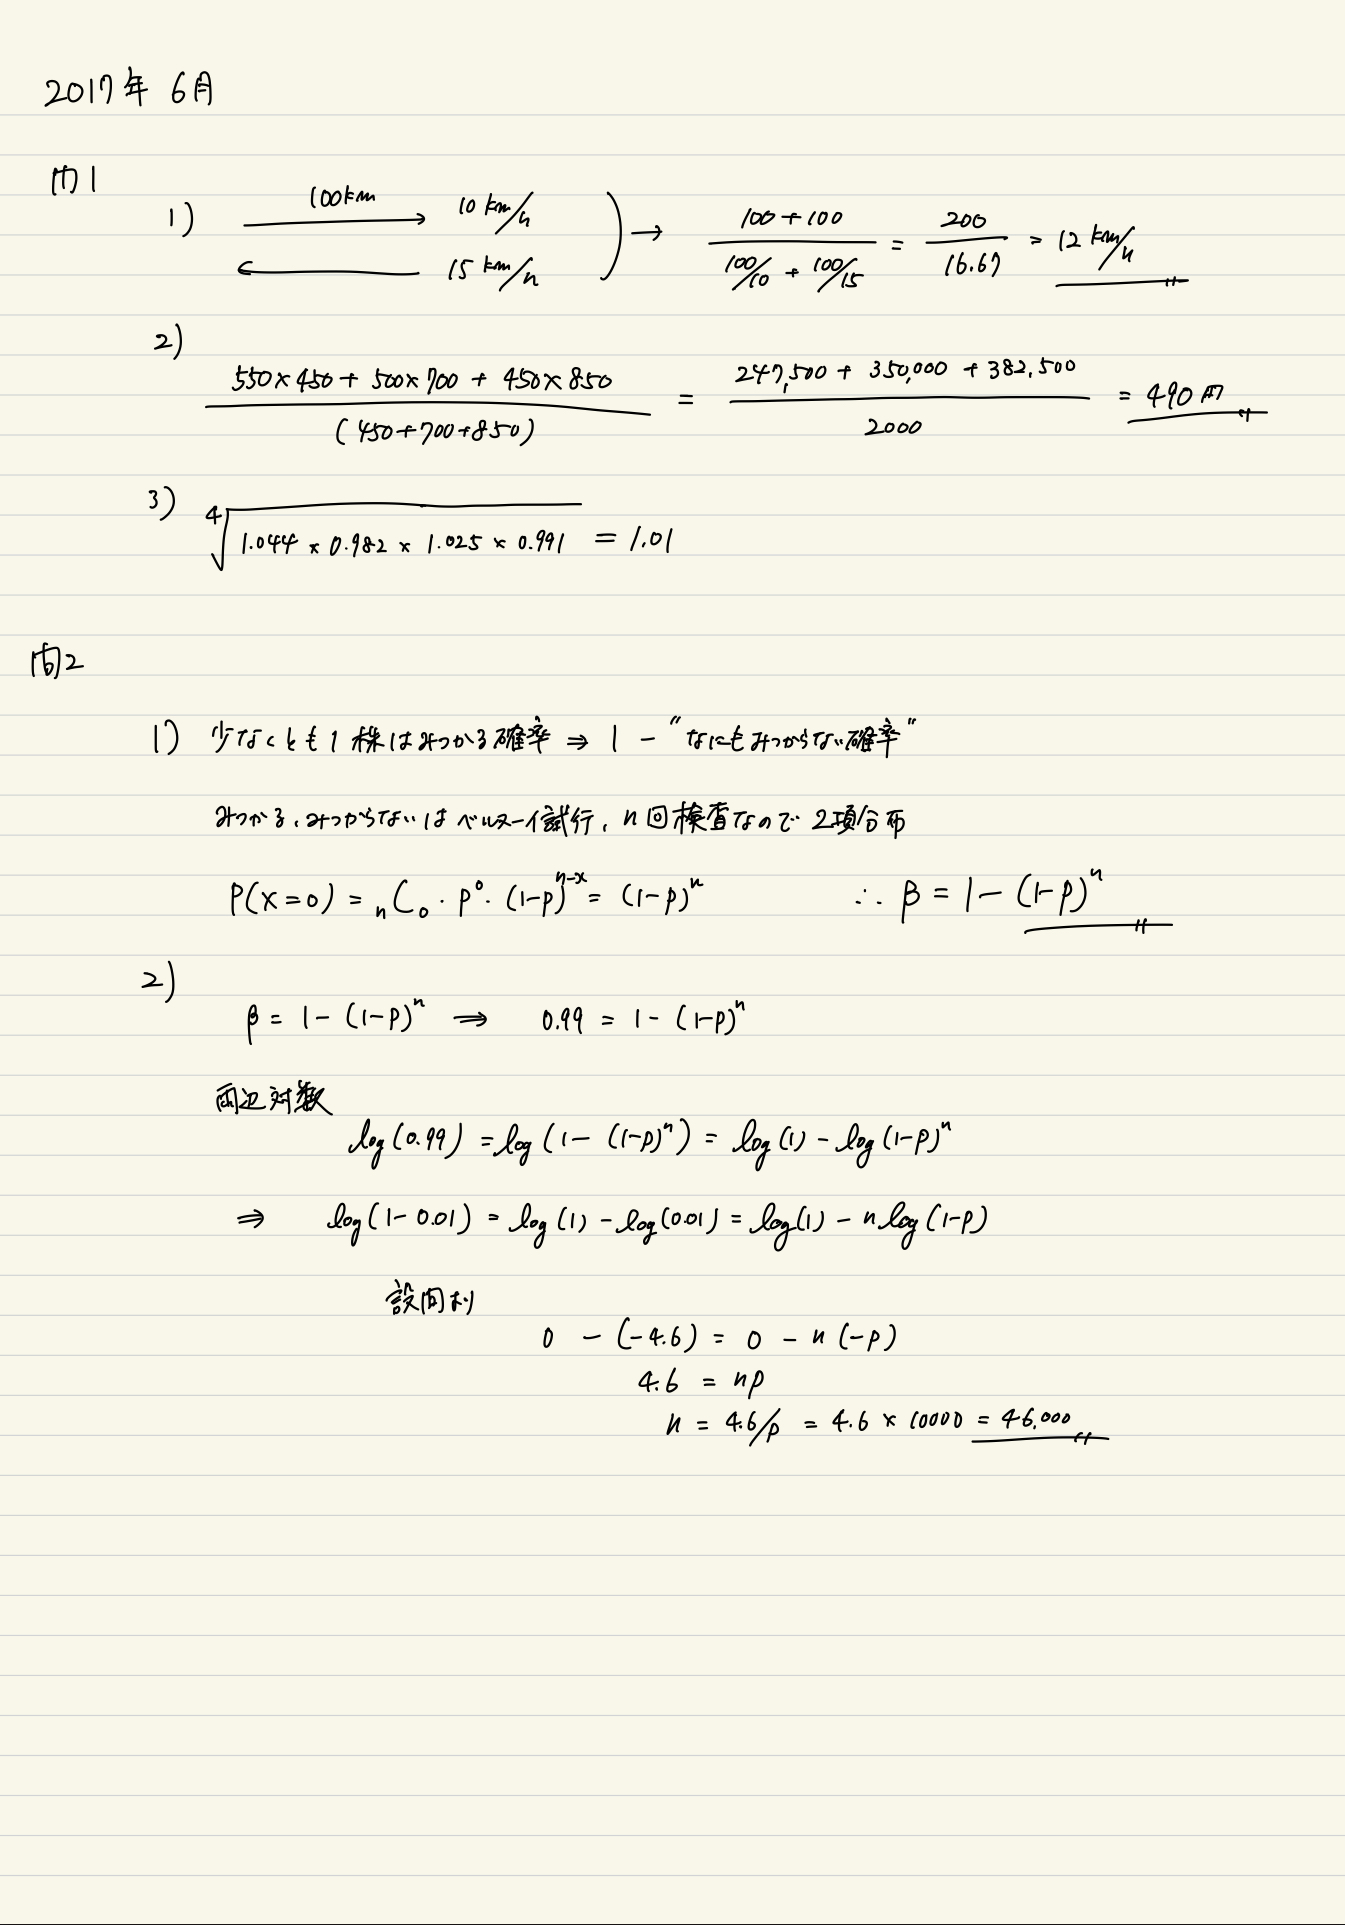 2017年 6月
問1
1) 100km 10 km/h 15 km/h ) → (100+100)/(100/10 + 100/15) = 200/16.67 = 12 km/h
2) (550×450 + 500×700 + 450×850)/(450+700+850) = (247,500 + 350,000 + 382,500)/2000 = 490 円
3) ⁴√(1.044 × 0.982 × 1.025 × 0.991) = 1.01
問2
1) 少なくとも1株はみつかる確率 ⇒ 1 - "なにもみつからない確率"
みつかる、みつからないはベルヌーイ試行、n回検査なので 2項分布
P(X=0) = nC0・p^0・(1-p)^n-x = (1-p)^n ∴ β = 1 - (1-p)^n
2)
β = 1 - (1-p)^n ⇒ 0.99 = 1 - (1-p)^n
両辺対数
log(0.99) = log(1 - (1-p)^n) = log(1) - log(1-p)^n
⇒ log(1-0.01) = log(1) - log(0.01) = log(1) - n log(1-p)
設問より
0 - (-4.6) = 0 - n(-p)
4.6 = np
n = 4.6/p = 4.6 × 10000 = 46,000